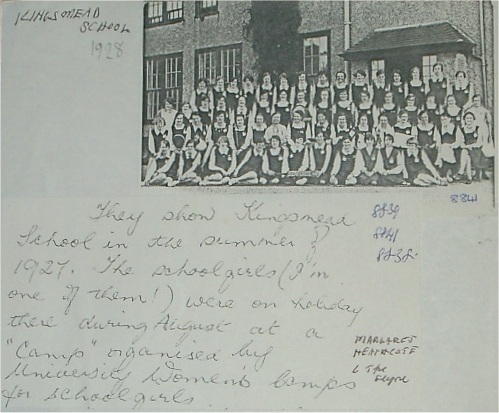 KINGSMEAD
SCHOOL
1928
8841
They show Kingsmead
School in the summer of
1927. The schoolgirls (I'm
one of them!) were on holiday
there during August at a
"Camp" organised by
University Women's Camps
for schoolgirls
8839
8841
8838
MARGARET
HEATHCOTE
6 The